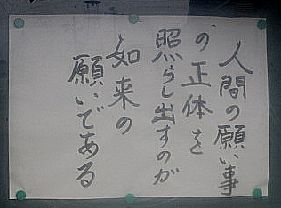 人間の願い事
の正体を
照らし出すのが
如来の
願いである